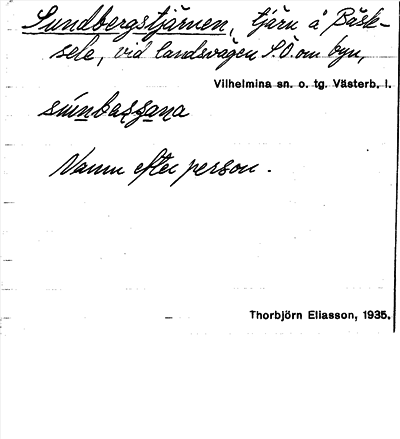 Sundbergstjärnen, tjärn å Bäsk-
sele, vid landsvägen S.Ö. om byn,
Vilhelmina sn. o. tg. Västerb. l.
Namn efter person.
Thorbjörn Eliasson, 1935.